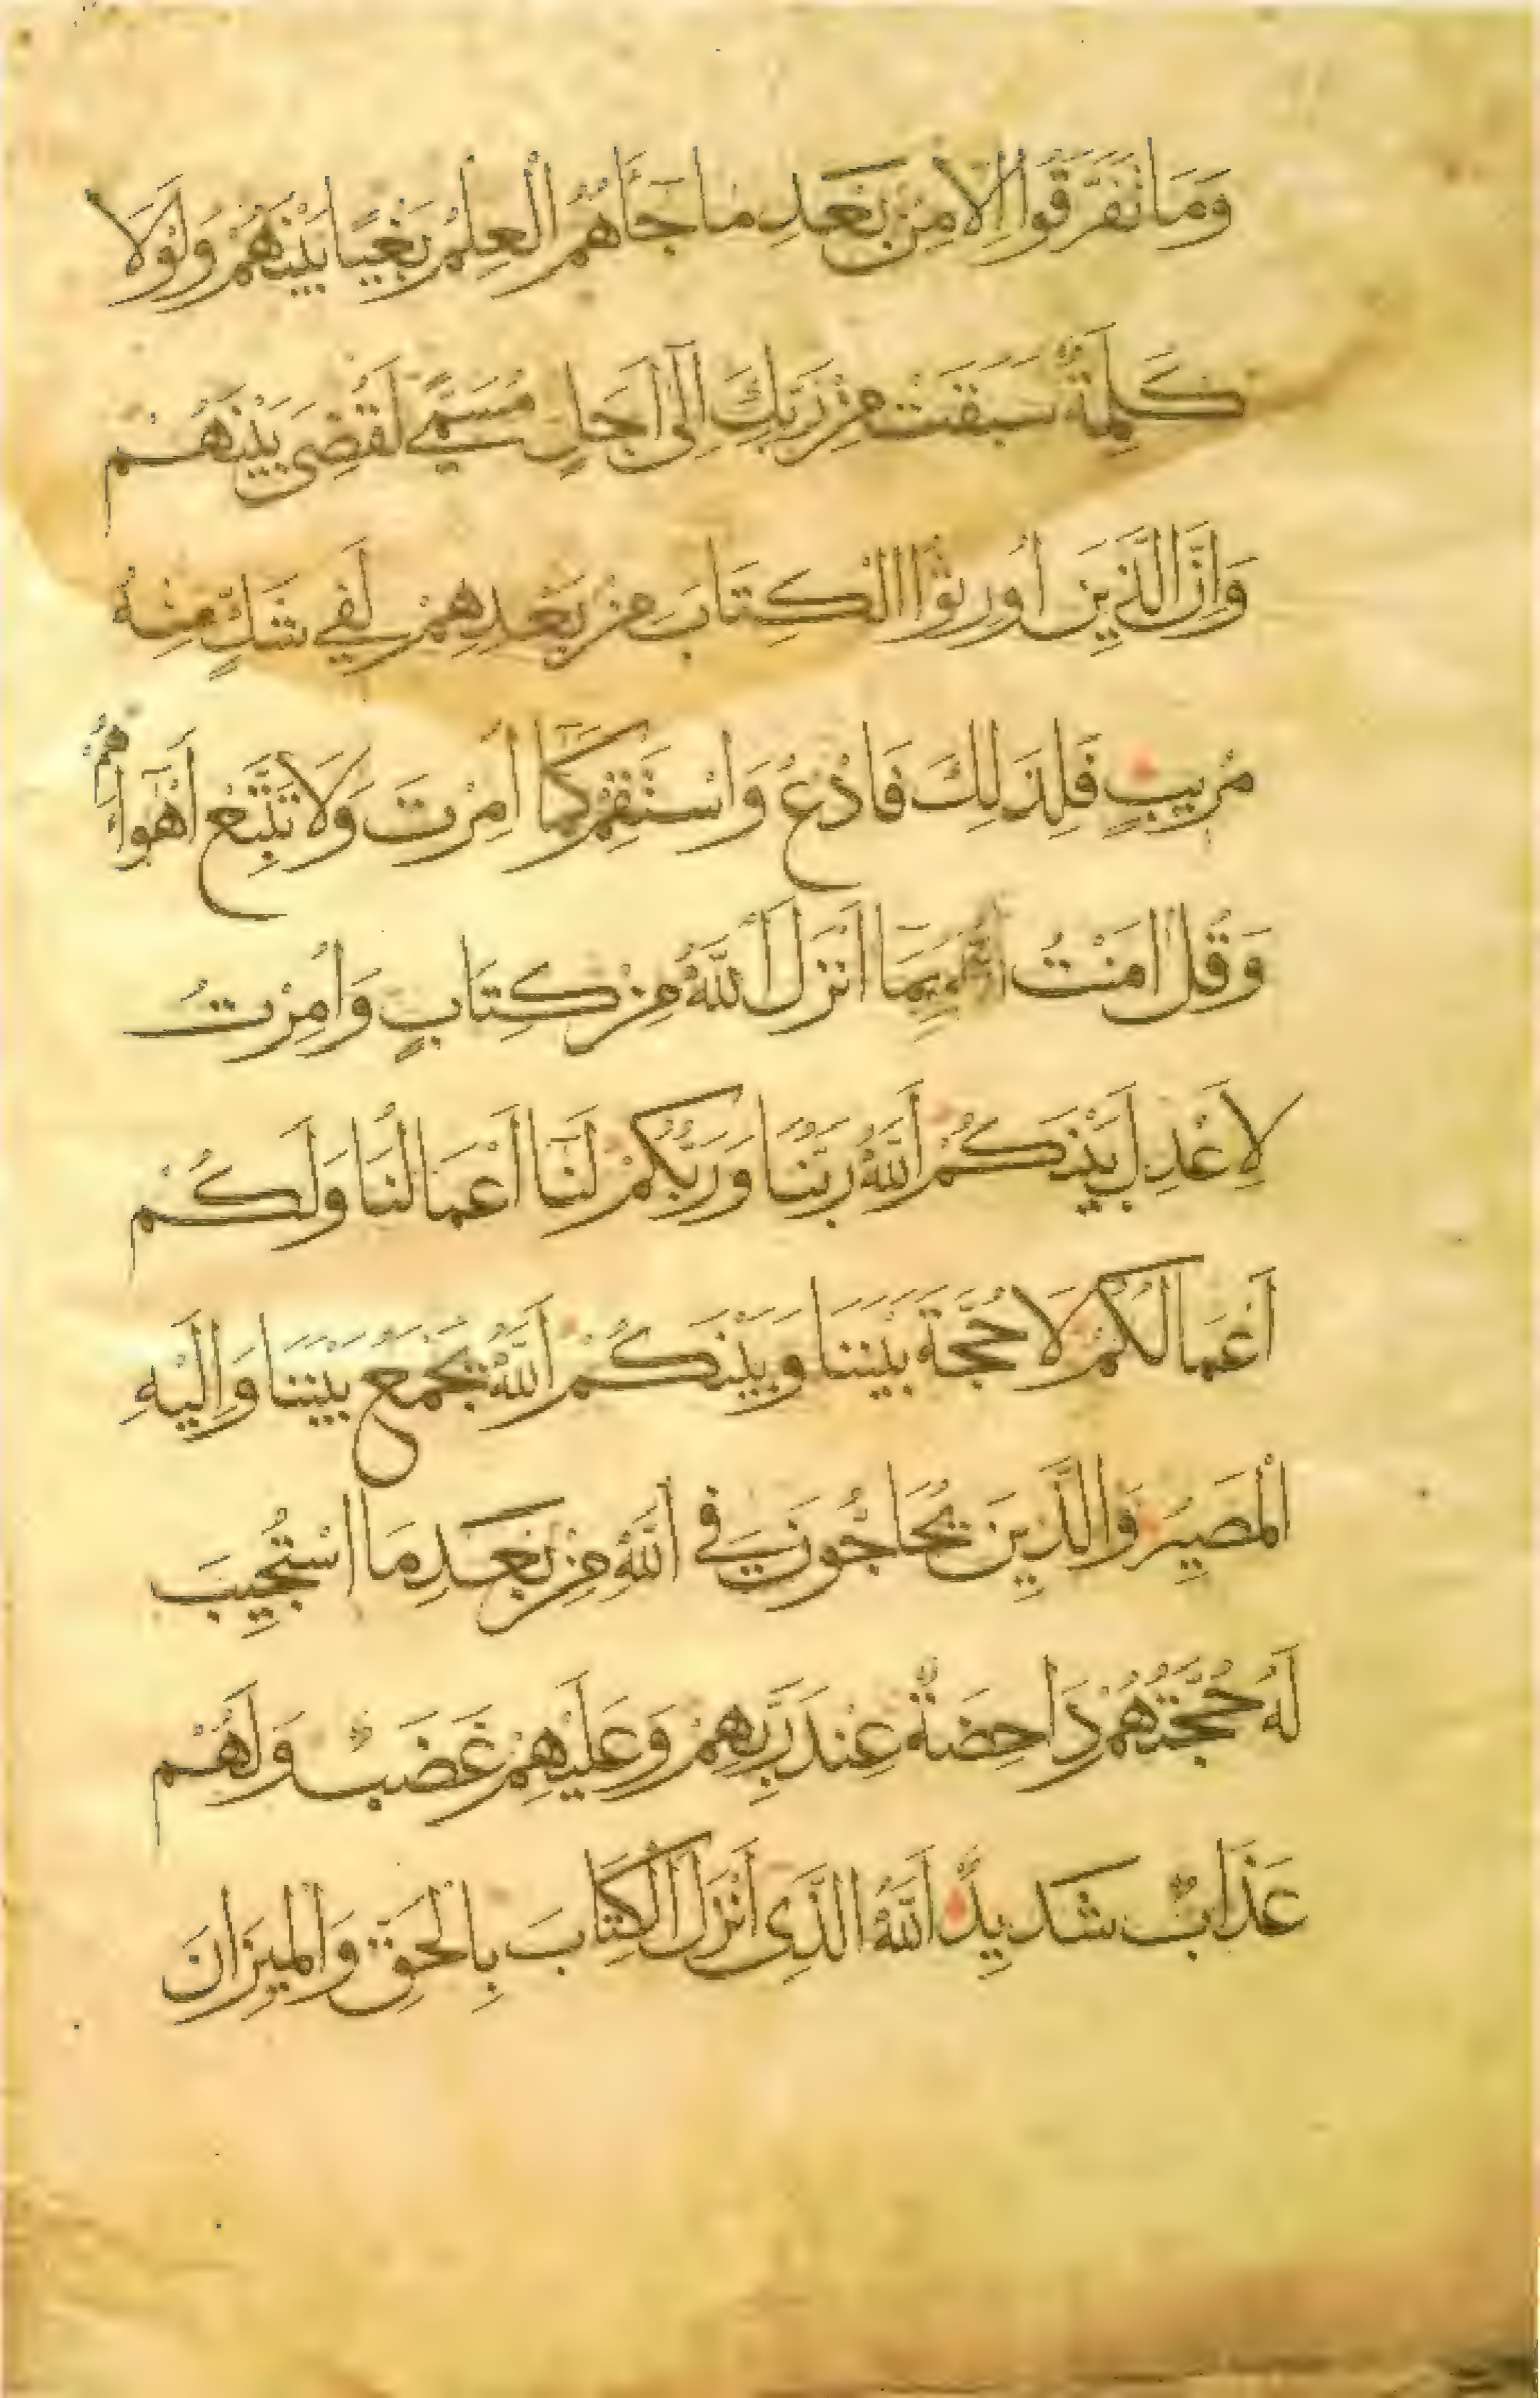 وَمَا تَفَرَّقُوا اِلَّا مِنْ بَعْدِ مَا جَاءَهُمُ الْعِلْمُ بَغْيًا بَيْنَهُمْ وَلَوْلَا
كَلِمَةٌ سَبَقَتْ مِنْ رَبِّكَ اِلٰى اَجَلٍ مُسَمًّى لَقُضِىَ بَيْنَهُمْ
وَاِنَّ الَّذِينَ اُورِثُوا الْكِتَابَ مِنْ بَعْدِهِمْ لَفِى شَكٍّ مِنْهُ
مُرِيبٍ فَلِذَلِكَ فَادْعُ وَاسْتَقِمْ كَمَا اُمِرْتَ وَلَا تَتَّبِعْ اَهْوَاءَهُمْ
وَقُلْ اٰمَنْتُ بِمَا اَنْزَلَ اَللّٰهُ مِنْ كِتَابٍ وَاُمِرْتُ
لِاَعْدِلَ بَيْنَكُمْ اَللّٰهُ رَبُّنَا وَرَبُّكُمْ لَنَا اَعْمَالُنَا وَلَكُمْ
اَعْمَالُكُمْ لَا حُجَّةَ بَيْنَنَا وَبَيْنَكُمْ اَللّٰهُ يَجْمَعُ بَيْنَنَا وَاِلَيْهِ
الْمَصِيرُ وَالَّذِينَ يُحَاجُّونَ فِى اللّٰهِ مِنْ بَعْدِ مَا اسْتُجِيبَ
لَهُ حُجَّتُهُمْ دَاحِضَةٌ عِنْدَ رَبِّهِمْ وَعَلَيْهِمْ غَضَبٌ وَلَهُمْ
عَذَابٌ شَدِيدٌ اَللّٰهُ الَّذِى اَنْزَلَ الْكِتَابَ بِالْحَقِّ وَالْمِيزَانَ